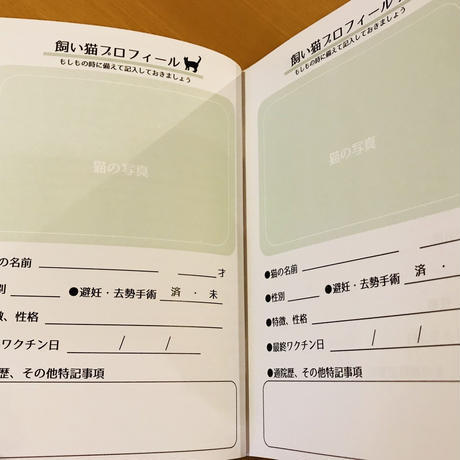 飼い猫プロフィール
もしもの時に備えて記入しておきましょう
猫の写真
の名前 才
別 ●避妊・去勢手術 済 ・ 未
、性格
ワクチン日 / /
歴、その他特記事項
飼い猫プロフィール
もしもの時に備えて記入しておきましょう
猫の写真
●猫の名前
●性別 ●避妊・去勢手術 済 ・
●特徴、性格
●最終ワクチン日 / /
●通院歴、その他特記事項